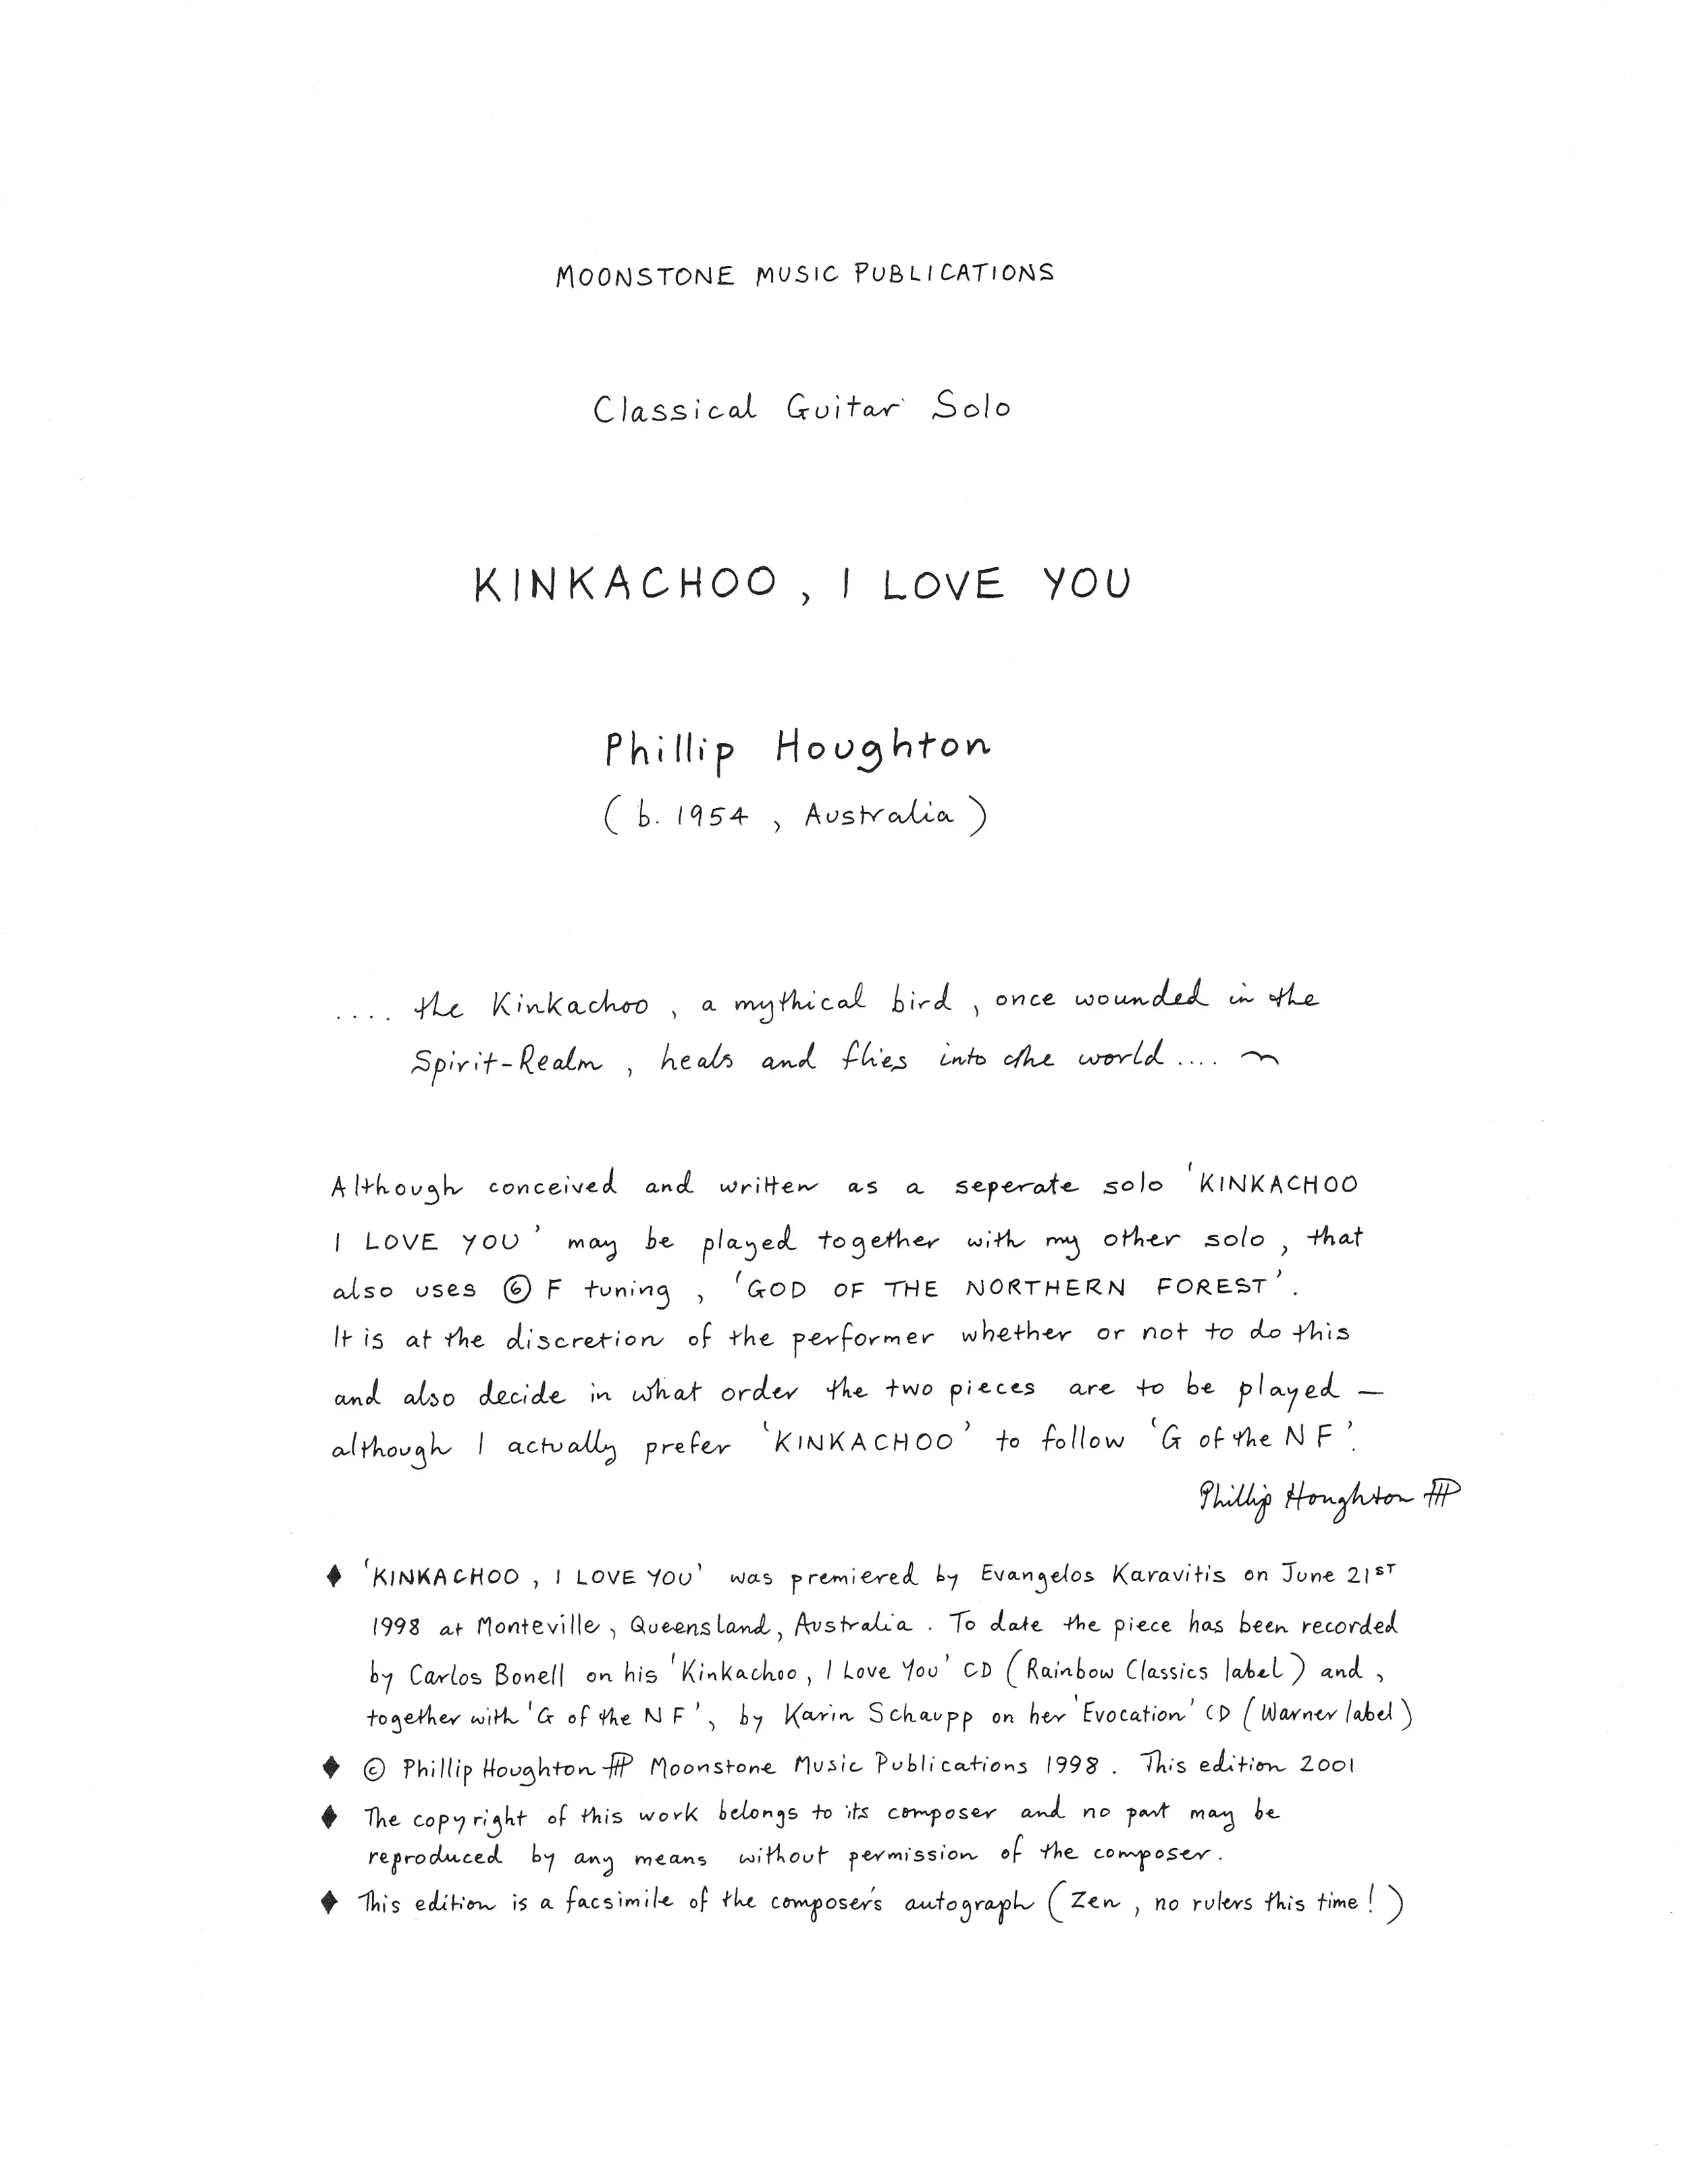 MOONSTONE MUSIC PUBLICATIONS
Classical Guitar Solo
KINKACHOO, I LOVE YOU
Phillip Houghton
(b. 1954, Australia)
.... the Kinkachoo, a mythical bird, once wounded in the
Spirit-Realm, heals and flies into the world.... ~
Although conceived and written as a seperate solo 'KINKACHOO
I LOVE YOU' may be played together with my other solo, that
also uses ⑥ F tuning, 'GOD OF THE NORTHERN FOREST'.
It is at the discretion of the performer whether or not to do this
and also decide in what order the two pieces are to be played —
although I actually prefer 'KINKACHOO' to follow 'G of the NF'.
Phillip Houghton
♦ 'KINKACHOO, I LOVE YOU' was premiered by Evangelos Karavitis on June 21ST
1998 at Monteville, Queensland, Australia. To date the piece has been recorded
by Carlos Bonell on his 'Kinkachoo, I Love You' CD (Rainbow Classics label) and,
together with 'G of the NF', by Karin Schaupp on her 'Evocation' CD (Warner label)
♦ © Phillip Houghton Moonstone Music Publications 1998. This edition 2001
♦ The copyright of this work belongs to its composer and no part may be
reproduced by any means without permission of the composer.
♦ This edition is a facsimile of the composer's autograph (Zen, no rulers this time!)